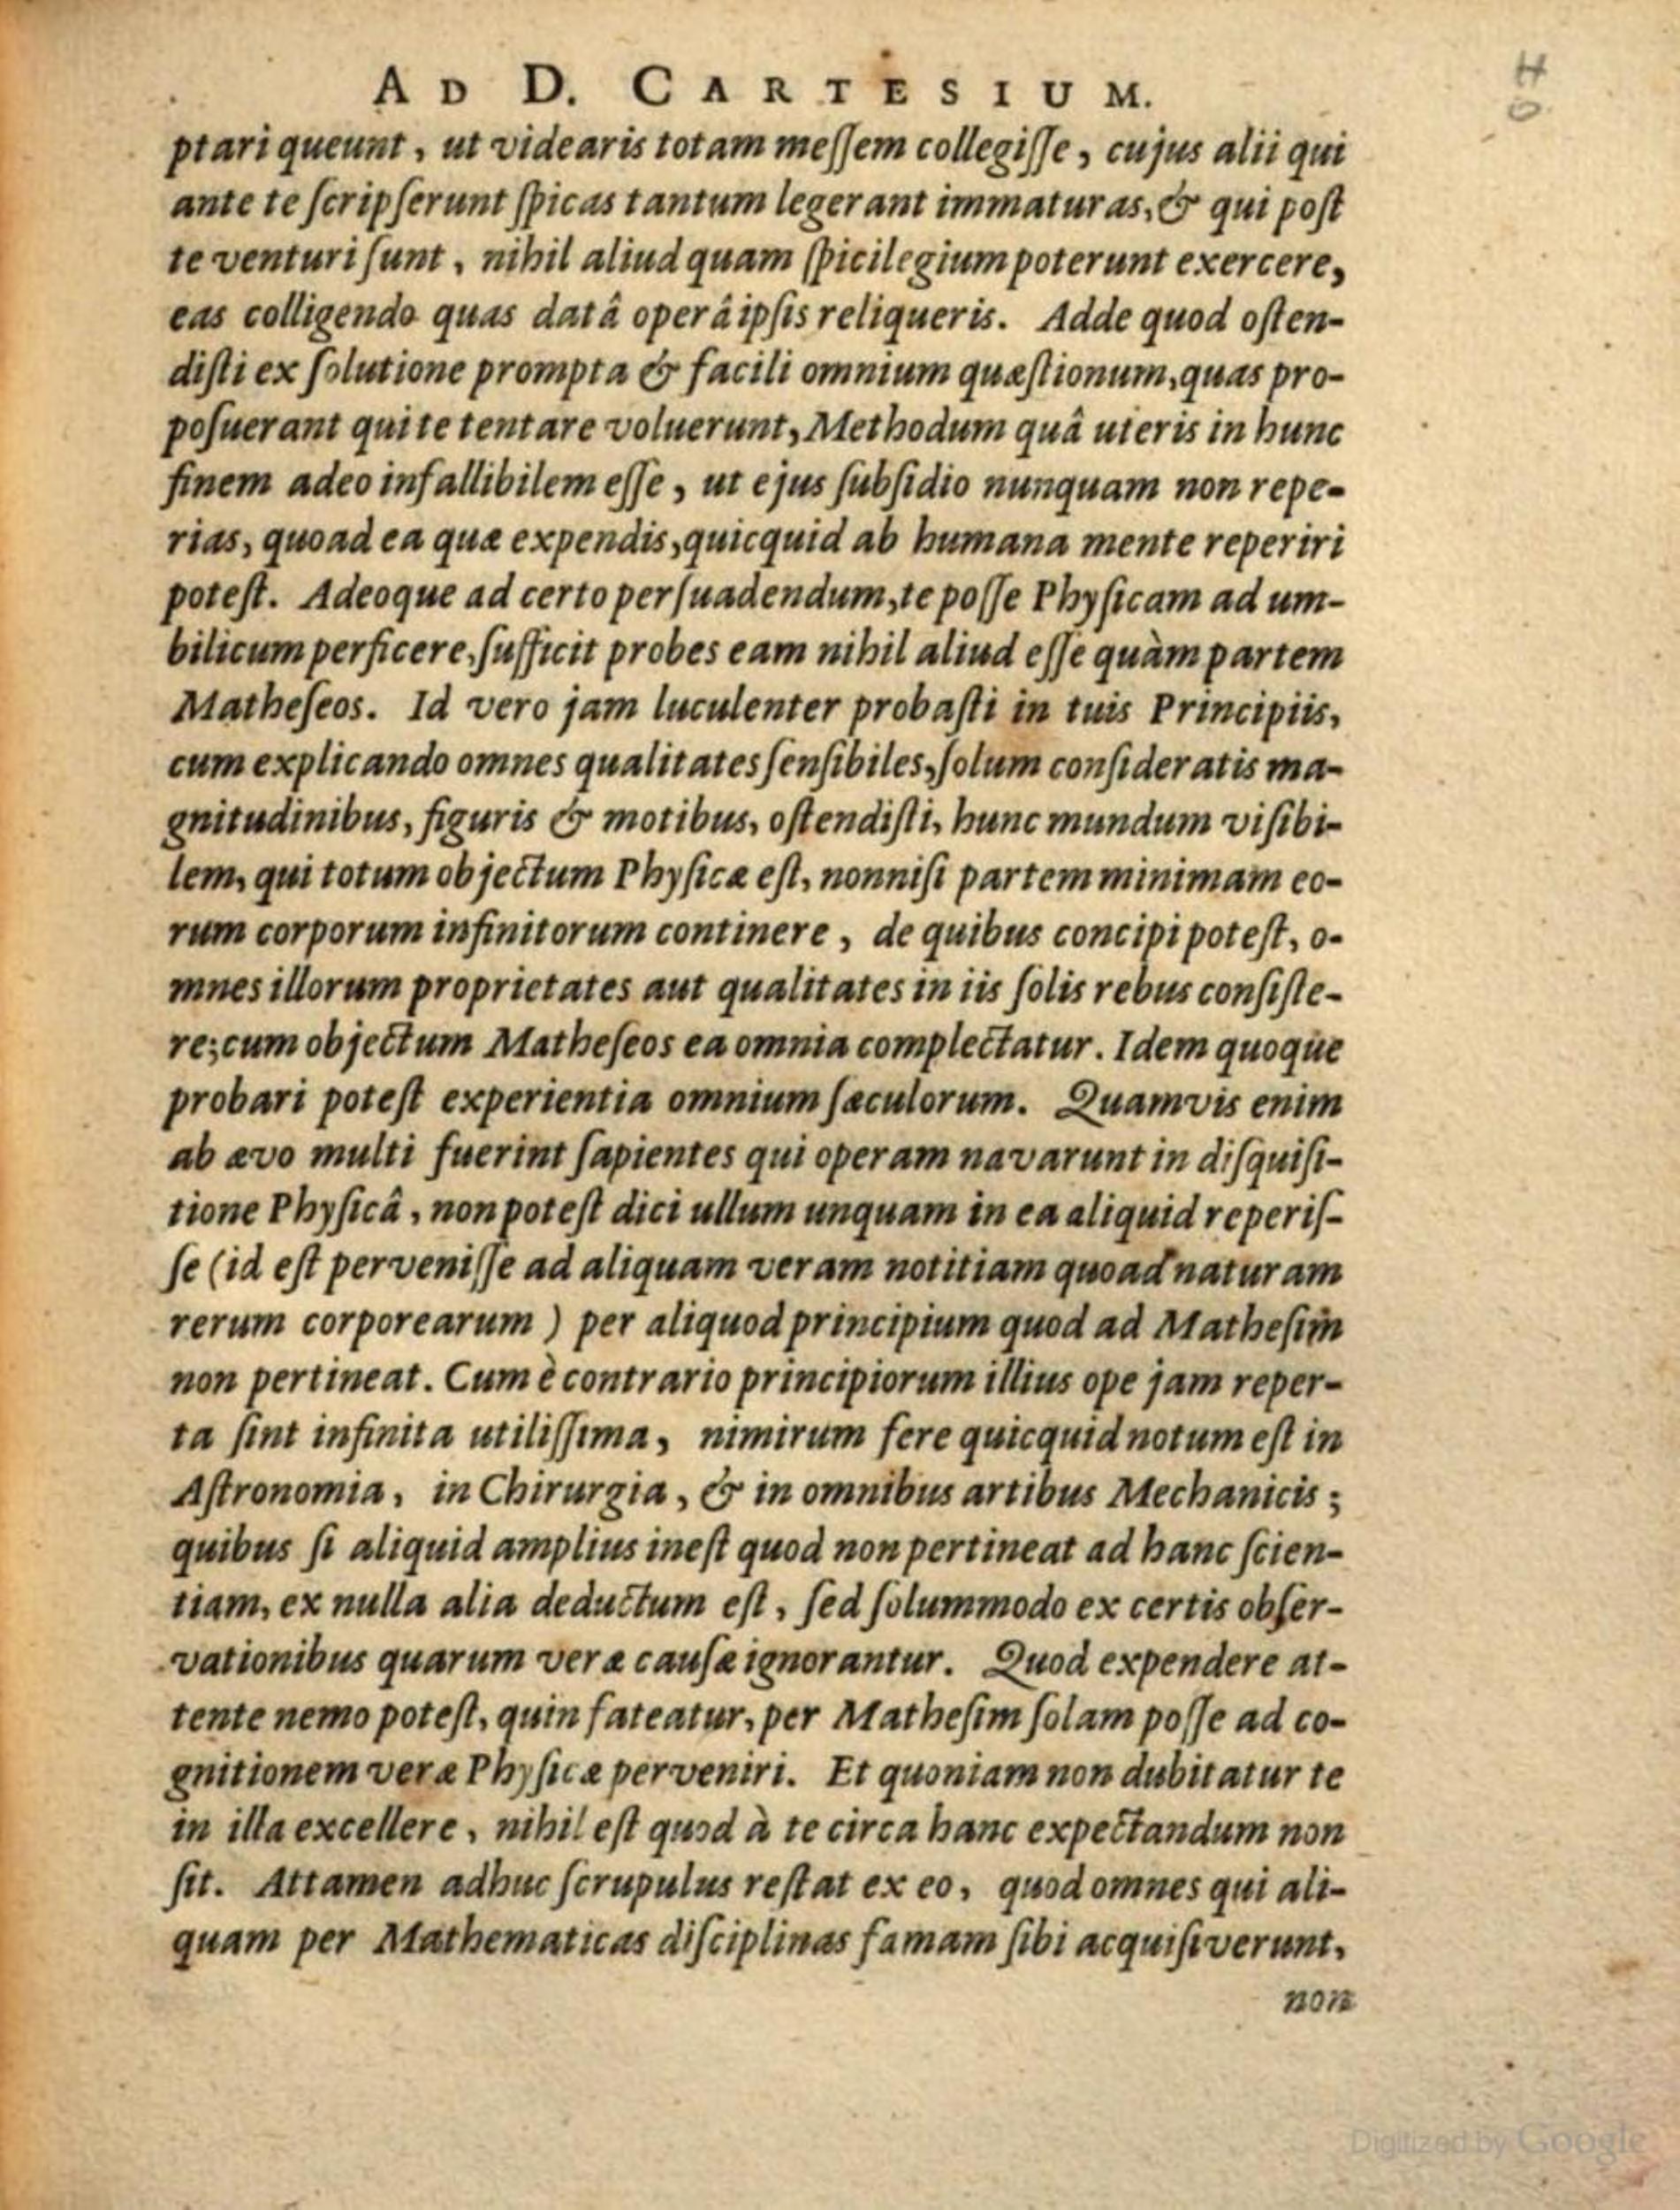 AD D. CARTESIUM.
ptari queunt, ut videaris totam meſſem collegiſſe, cujus alii qui
ante te ſcripſerunt ſpicas tantum legerant immaturas, & qui poſt
te venturi ſunt, nihil aliud quam ſpicilegium poterunt exercere,
eas colligendo quas datâ operâ ipſis reliqueris. Adde quod oſten-
diſti ex ſolutione prompta & facili omnium quæſtionum, quas pro-
poſuerant qui te tentare voluerunt, Methodum quâ uteris in hunc
finem adeo infallibilem eſſe, ut ejus ſubſidio nunquam non repe-
rias, quoad ea quæ expendis, quicquid ab humana mente reperiri
poteſt. Adeoque ad certo perſuadendum, te poſſe Phyſicam ad um-
bilicum perficere, ſufficit probes eam nihil aliud eſſe quàm partem
Matheſeos. Id vero jam luculenter probaſti in tuis Principiis,
cum explicando omnes qualitates ſenſibiles, ſolum conſideratis ma-
gnitudinibus, figuris & motibus, oſtendiſti, hunc mundum viſibi-
lem, qui totum objectum Phyſicæ eſt, nonniſi partem minimam eo-
rum corporum infinitorum continere, de quibus concipi poteſt, o-
mnes illorum proprietates aut qualitates in iis ſolis rebus conſiſte-
re; cum objectum Matheſeos ea omnia complectatur. Idem quoque
probari poteſt experientia omnium ſæculorum. Quamvis enim
ab ævo multi fuerint ſapientes qui operam navarunt in diſquiſi-
tione Phyſicâ, non poteſt dici ullum unquam in ea aliquid reperiſ-
ſe (id eſt perveniſſe ad aliquam veram notitiam quoad naturam
rerum corporearum) per aliquod principium quod ad Matheſim
non pertineat. Cum è contrario principiorum illius ope jam reper-
ta ſint infinita utiliſſima, nimirum fere quicquid notum eſt in
Aſtronomia, in Chirurgia, & in omnibus artibus Mechanicis;
quibus ſi aliquid amplius ineſt quod non pertineat ad hanc ſcien-
tiam, ex nulla alia deductum eſt, ſed ſolummodo ex certis obſer-
vationibus quarum veræ cauſæ ignorantur. Quod expendere at-
tente nemo poteſt, quin fateatur, per Matheſim ſolam poſſe ad co-
gnitionem veræ Phyſicæ perveniri. Et quoniam non dubitatur te
in illa excellere, nihil eſt quod à te circa hanc expectandum non
ſit. Attamen adhuc ſcrupulus reſtat ex eo, quod omnes qui ali-
quam per Mathematicas diſciplinas famam ſibi acquiſiverunt,
non
Digitized by Google